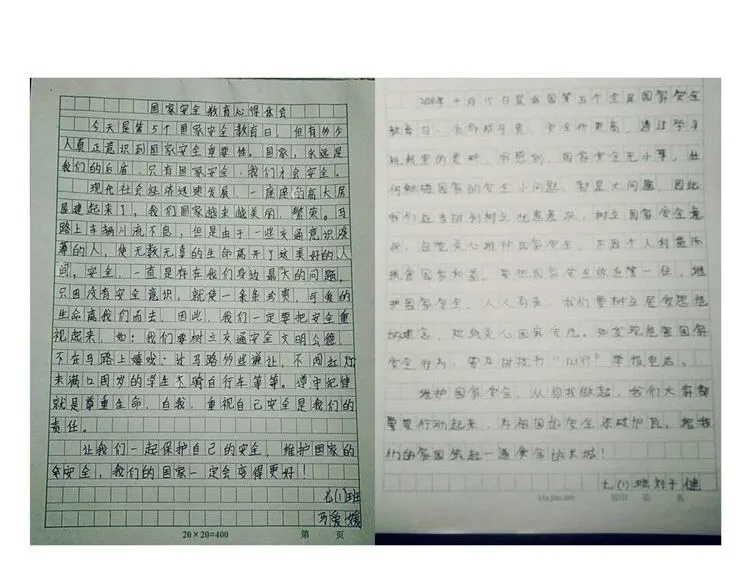 国家安全教育心得体会
今天是第5个国家安全教育日，但有多少
人真正意识到国家安全重要性。国家，永远是
我们的后盾，只有国家安全，我们才会安全。
现代社会经济迅速发展，一座座的高大房
屋建起来了，我们国家越来越美丽，繁荣。马
路上车辆川流不息，但是由于一些交通意识浅
薄的人，使无数无辜的生命离开了这美好的人
间，安全，一直是存在我们身边最大的问题，
只因没有安全意识，就使一条条珍贵，可爱的
生命离我们而去，因此，我们一定要把安全重
视起来，如：我们要树立交通安全文明公德，
不在马路上嬉戏；过马路多些谦让，不闯红灯
未满12周岁的学生不骑自行车等等。遵守纪律
就是尊重生命，自我，重视自己安全是我们的
责任。
让我们一起保护自己的安全，维护国家的
安全，我们的国家一定会变得更好！
九(1)班
马爱媛
20×20=400 第 页
2020年4月15日是我国第五个全民国家安全
教育日。生命至重，安全，通过学习
，我感到，国家安全无小事，任
何触碰国家的安全小问题，都是大问题，因此
我们应当时刻树立忧患意识，树立国家安全意
识，自觉关心维护国家安全，不因个人利益而
损害国家利益。要把国家安全放在第一位，维
护国家安全，人人有责，我们要树立居安思危
的理念，始终关心国家安危。如发现危害国家
安全行为，要及时拨打“12339”举报电话。
维护国家安全，从你我做起，我们大家都
要行动起来，为祖国的安全添砖加瓦，给我
们的家园筑起一道安全的长城！
九(1)班刘子健
15×20=300 第 页